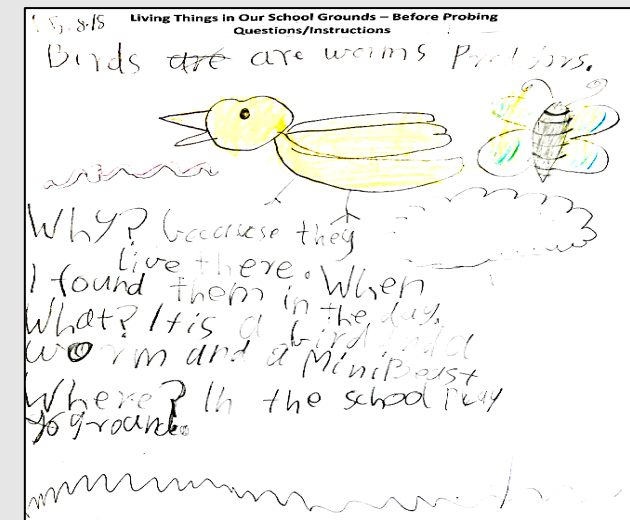 15.8.15 Living Things in Our School Grounds – Before Probing
Questions/Instructions
Birds are are worms
Why? because they
live there.
I found them in When
the day.
What? It is a bird and a
worm and a MiniBeast
Where? In the school Play
ground.